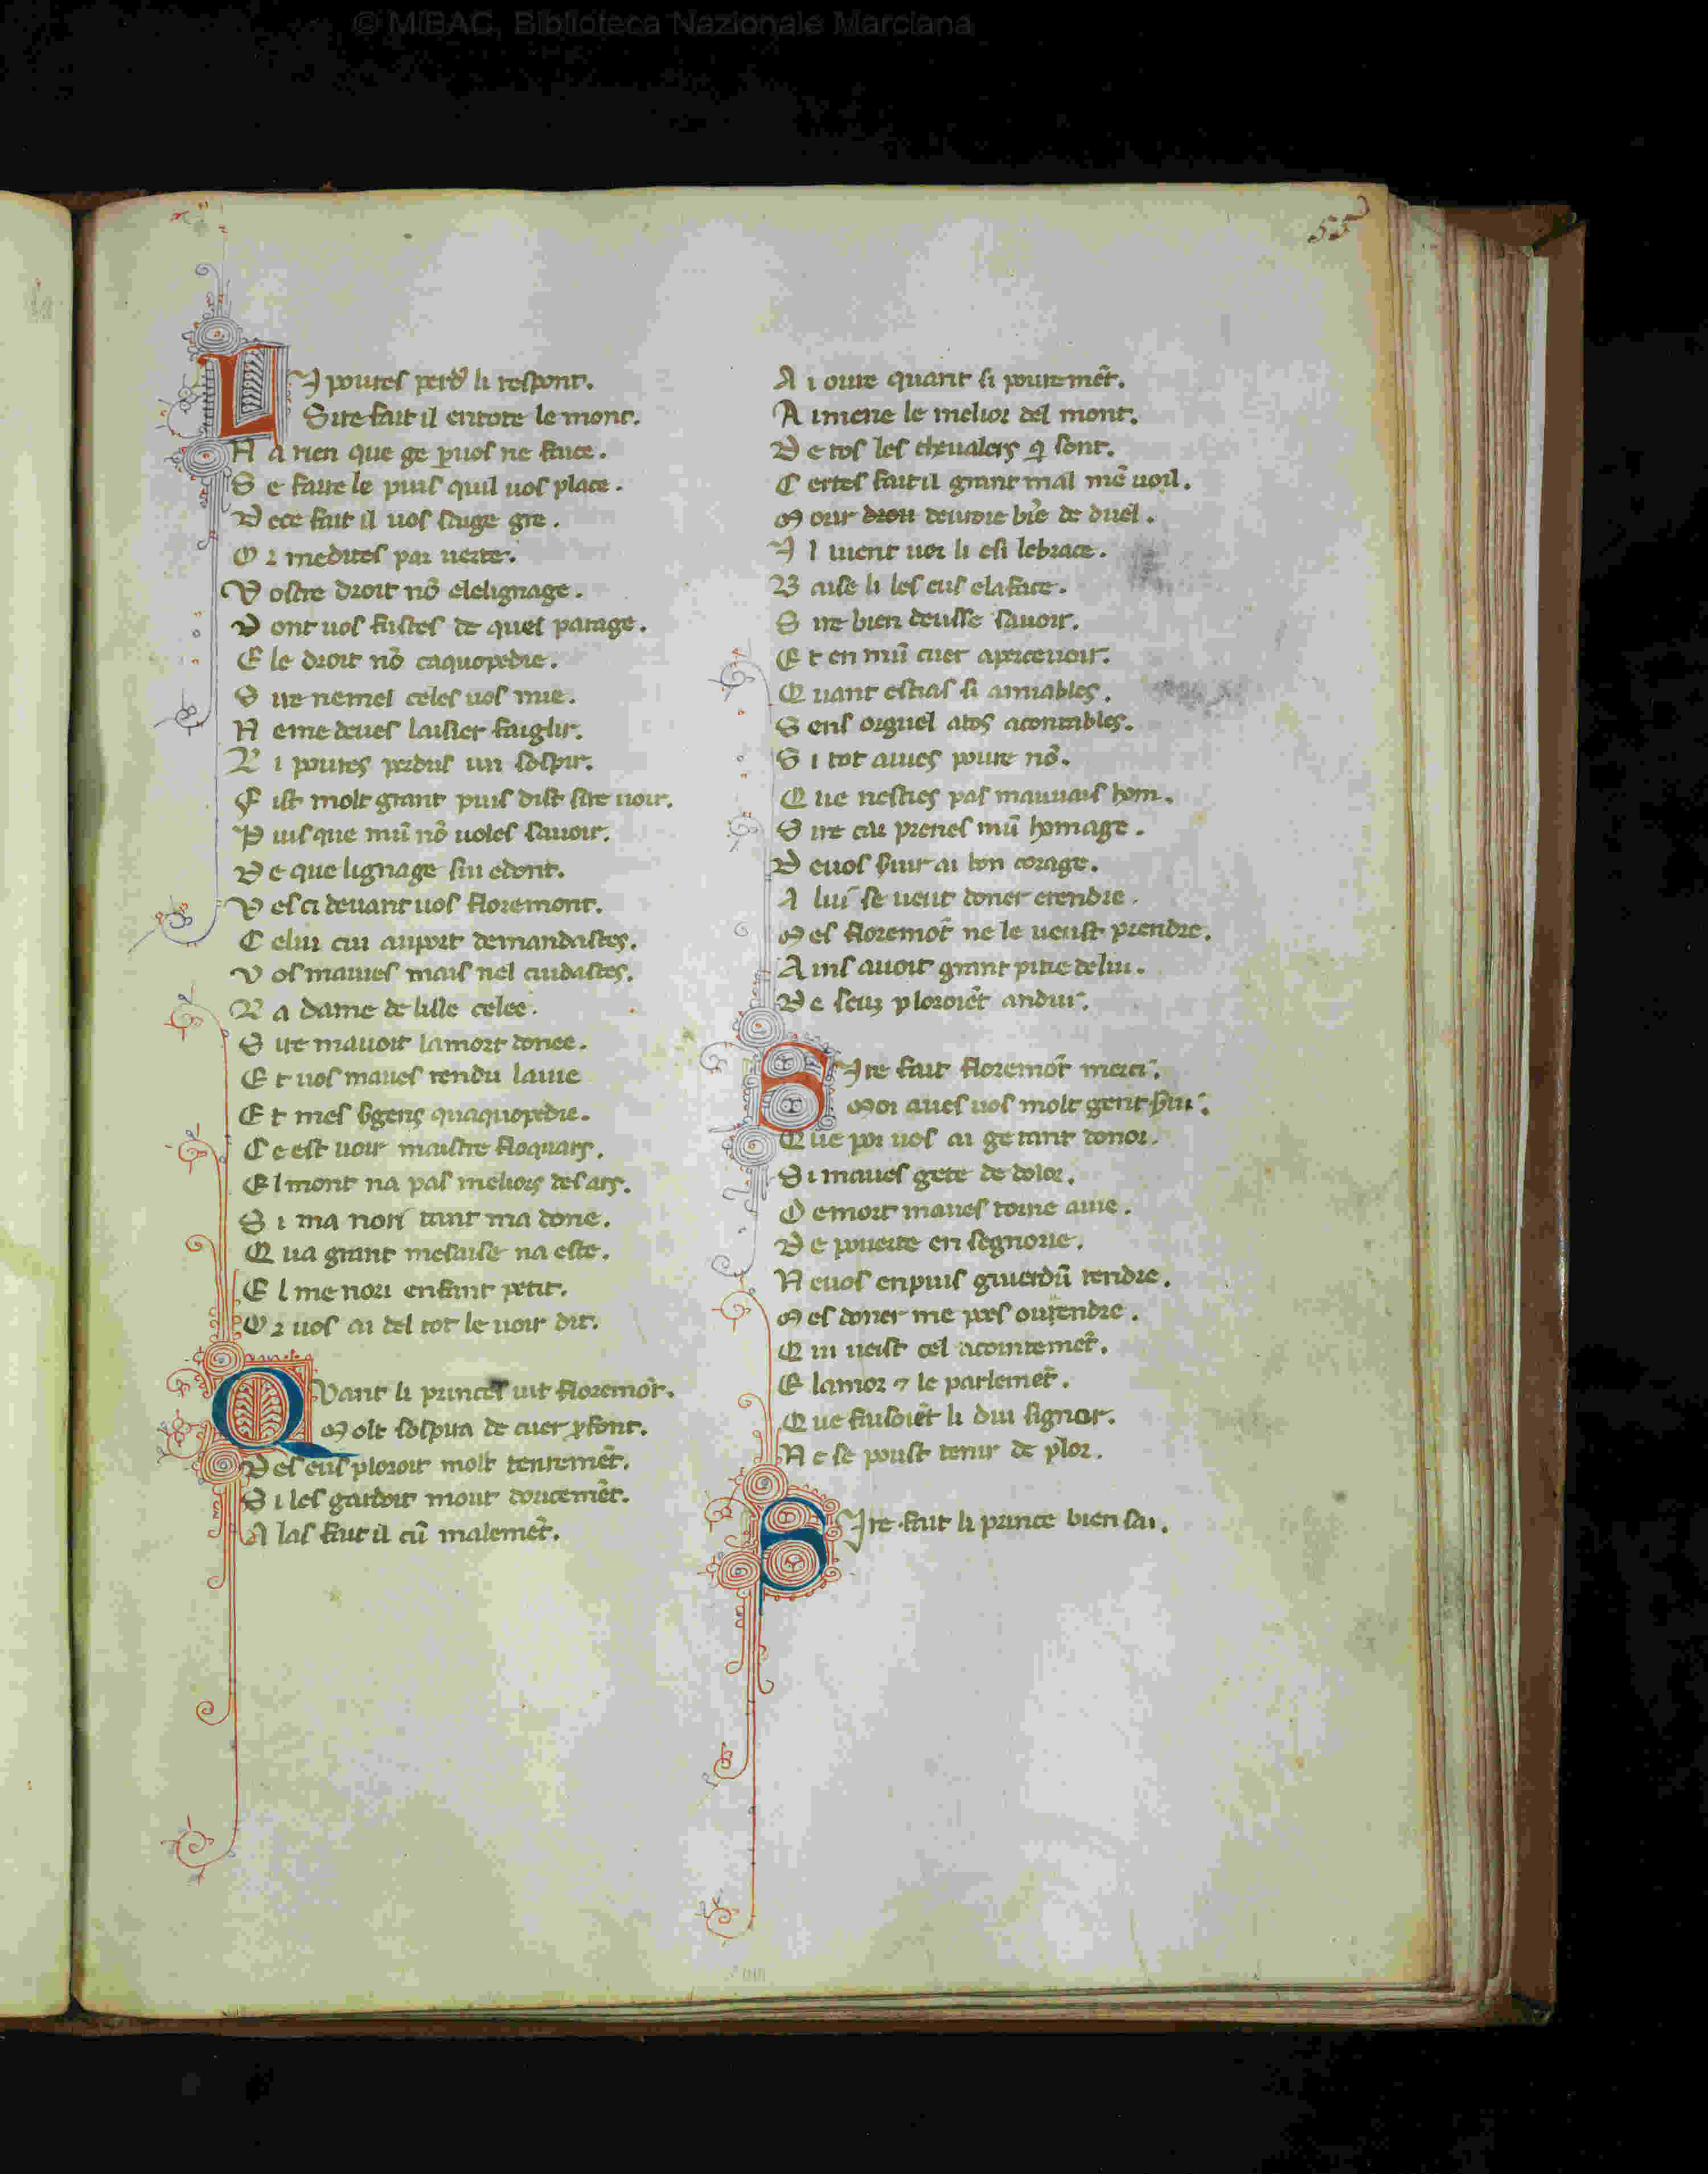 © MiBAC, Biblioteca Nazionale Marciana
55
LI poures perdꝰ li respont.
Sire fait il entote le mont.
N a rien que ge ꝑ uos ne face.
S e faire le puis quil uos place.
D ece fait il uos saige gre.
O r medites par uerte.
V ostre droit nō elelignage.
D ont uos fustes de quel parage.
E le droit nō caquopedie.
S ire nemel celes uos mie.
N eme deues laisier faiglir.
L i poures perdus un sospir.
F ist molt grant puis dist sire uoir.
P uis que mū nō uoles sauoir.
D e que lignage sui edont.
V es ci deuant uos floremont.
C elui cui auport demandastes.
V os mauies mais nel cuidastes.
L a dame de lille celee.
S ire mauoit lamort donee.
E t uos maues rendu lauie
E t mes sergens quaquopedie.
C e est uoir maistre floquars.
E l mont na pas meliors des ars.
S i ma nori tant ma done.
Q ua grant mesaise na este.
E l me nori enfant petit.
O r uos ai del tot le uoir dit.
QVant li princes uit floremōt.
Molt sospira de cuer ꝓfont.
D es eus ploroit molt tenremēt.
S i les gardoit mout doucemēt.
A las fait il cū malemēt.
A i oure quant si pouremēt.
A imene le melior del mont.
D e tos les cheualers q̄ sont.
C ertes fait il grant mal mē uoil.
M orir droit deuroie biē de duel.
I l uient uer li esi lebrace.
B aise li les eus elaface.
S ire bien deusse sauoir.
E t en mū cuer aperceuoir.
Q uant estias si amiables.
S ens orguel atos acontables.
S i tot auies poure nō.
Q ue nesties pas mauuais hom.
S ire car prenes mū homage.
D euos seruir ai bon corage.
A lui se ueut doner erendre.
M es floremōt ne le ueust prendre.
A ins auoit grant pitie delui.
D e seuz ploroiēt andui.
SIre fait floremōt merci.
Mor aues uos molt gent serui.
Q ue por uos ai ge tant donor.
S i maues gete de dolor.
D emort maues torne auie.
D e pouerte en segnorie.
N euos enpuis guerdū rendre.
M es doner me pres ou rendre.
Q ui ueist cel acointemēt.
E lamor ⁊ le parlemēt.
Q ue faisoiēt li dui signor.
N e se poust tenir de plor.
SIre fait li prince bien sai.